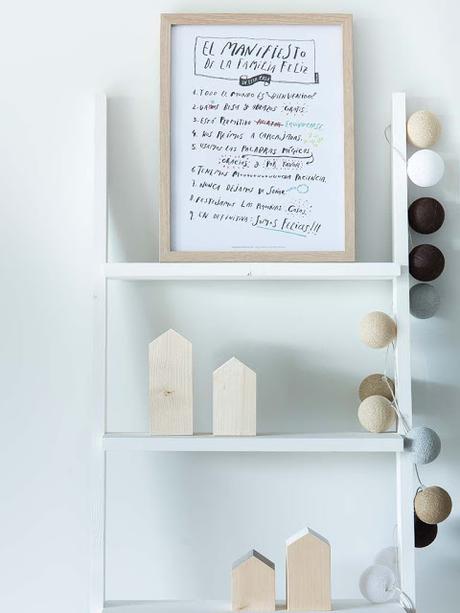 EL MANIFIESTO
DE LA FAMILIA FELIZ
EN ESTA CASA
1. TODO EL MUNDO ES ¡BIENVENIDO!
2. DAMOS BESOS Y ABRAZOS GRATIS.
3. ESTÁ PERMITIDO EQUIVOCARSE.
4. NOS REÍMOS A CARCAJADAS.
5. USAMOS LAS PALABRAS MÁGICAS
GRACIAS Y POR FAVOR.
6. TENEMOS PACIENCIA.
7. NUNCA DEJAMOS DE SOÑAR
8. FESTEJAMOS LAS PEQUEÑAS COSAS.
9. EN DEFINITIVA: SOMOS FELICES!!!